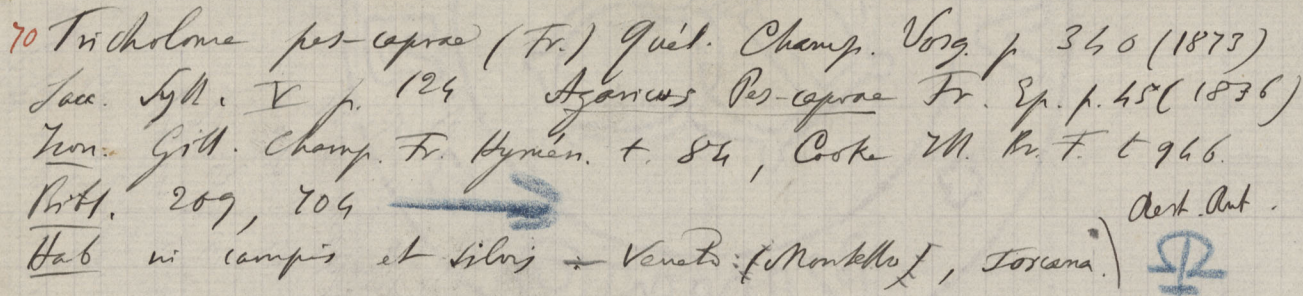 70 Tricholoma pes-caprae (Fr.) Quél. Champ. Vosg. p 340 (1873)
Sacc. Syll. V p. 124 Agaricus Pes-caprae Fr. Ep. p. 45 (1836)
Icon. Gill. Champ. Fr. Hymén. t. 84, Cooke Ill. Br. F. t 946.
Bibl. 209, 704 Aest. Aut.
Hab in campis et silvis - Veneto: (Montello), Toscana.)